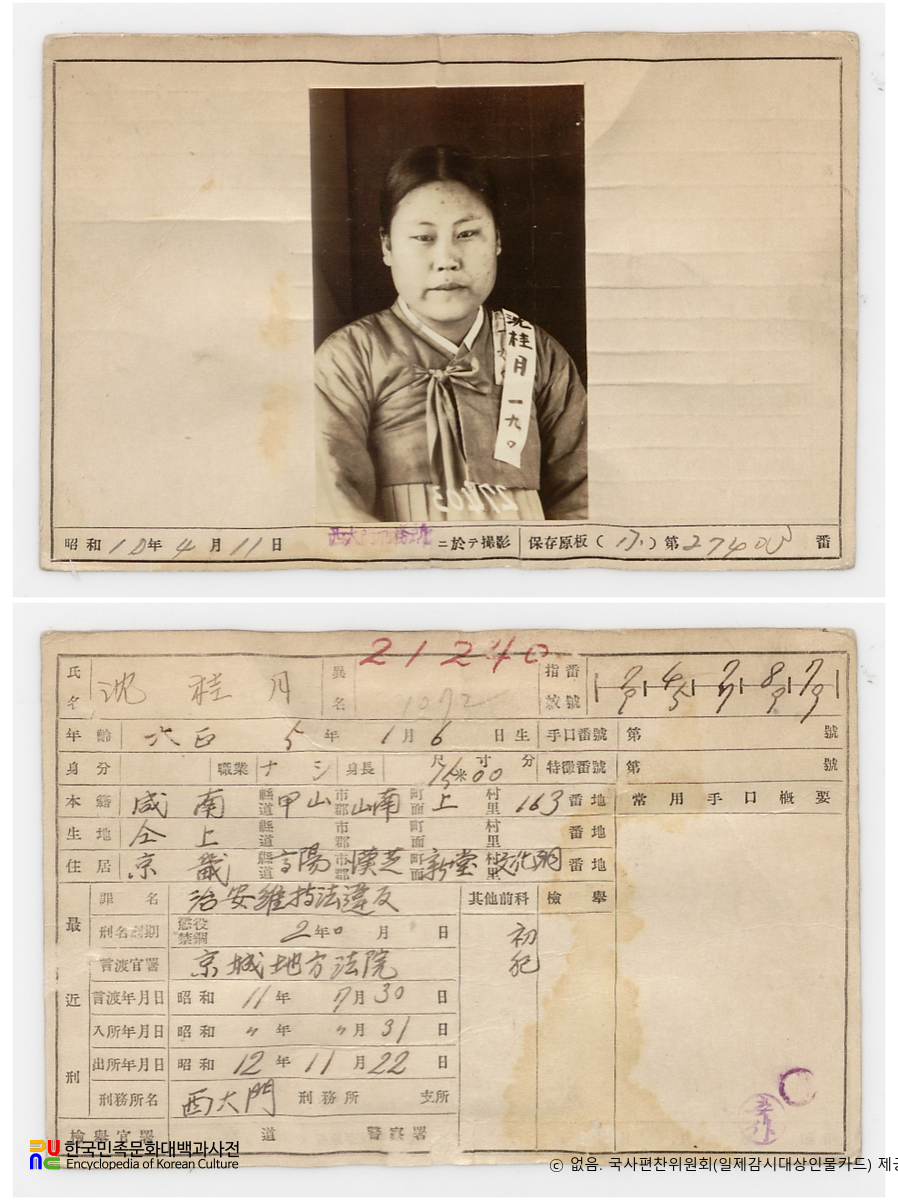 沈桂月 一九〇
27403
昭和10年4月11日 西大門刑務所ニ於テ撮影 保存原板( )第27403番
21240
氏名 沈桂月 異名 1072 指紋番號
年齡 大正5年1月6日生 手口番號 第 號
身分 職業 ナシ 身長 尺寸分 特徵番號 第 號
本籍 咸南 縣道 甲山 市郡 山南 町面 上 村里 163 番地 常用手口槪要
生地 仝上 縣道 市郡 町面 村里 番地
住居 京畿 縣道 高陽 市郡 漢芝 町面 新堂 村里 文化洞 番地
最近刑
罪名 治安維持法違反 其他前科 檢擧
刑名刑期 懲役 禁錮 2年0月 日 初犯
言渡官署 京城地方法院
言渡年月日 昭和11年7月30日
入所年月日 昭和〃年〃月31日
出所年月日 昭和12年11月22日
刑務所名 西大門刑務所 支所
檢擧官署 道 警察署
한국민족문화대백과사전
Encyclopedia of Korean Culture
© 없음. 국사편찬위원회(일제감시대상인물카드) 제공